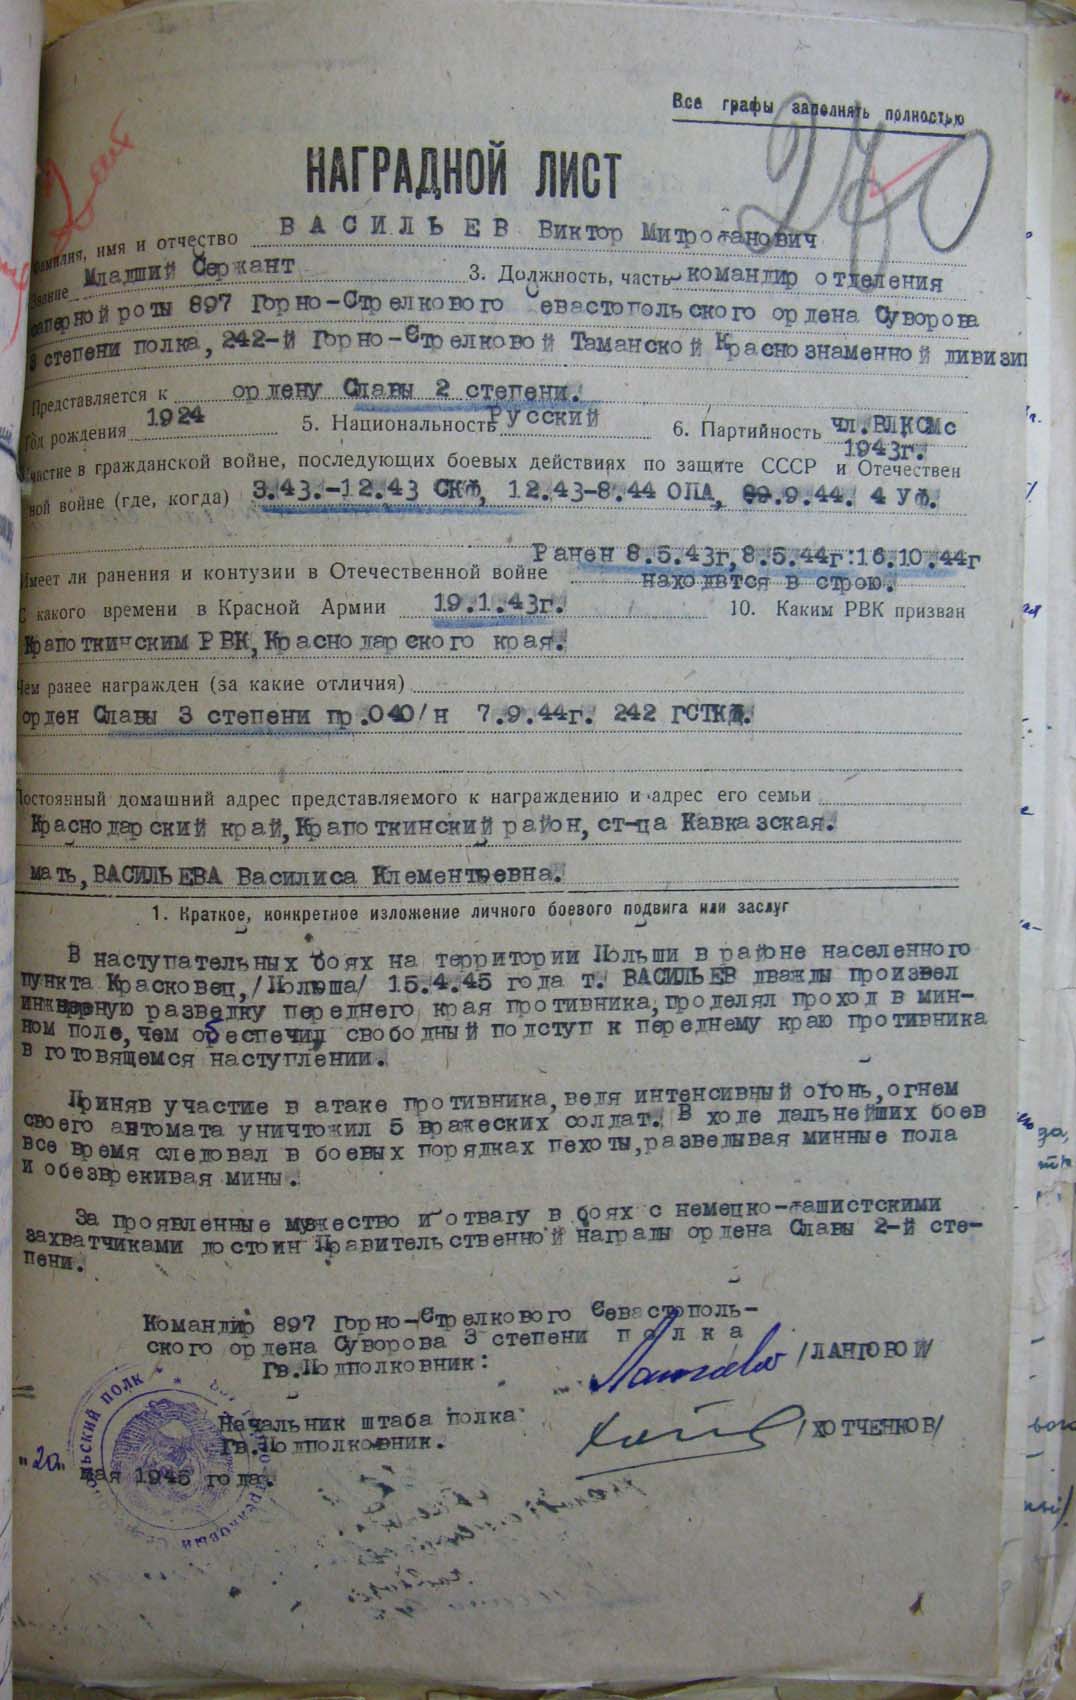 Все графы заполнять полностью
270
НАГРАДНОЙ ЛИСТ
Фамилия, имя и отчество ВАСИЛЬЕВ Виктор Митрофанович
Звание Младший Сержант 3. Должность, часть командир отделения
саперной роты 897 Горно-Стрелкового Севастопольского ордена Суворова
3 степени полка, 242-й Горно-Стрелковой Таманской Краснознаменной дивизии
Представляется к ордену Славы 2 степени.
Год рождения 1924 5. Национальность Русский 6. Партийность чл.ВЛКСМс
1943г.
Участие в гражданской войне, последующих боевых действиях по защите СССР и Отечествен
ной войне (где, когда) 3.43.-12.43 СКФ, 12.43-8.44 ОПА, 09.9.44. 4 Уф.
Ранен 8.5.43г, 8.5.44г:16.10.44г
Имеет ли ранения и контузии в Отечественной войне находятся в строю.
С какого времени в Красной Армии 19.1.43г. 10. Каким РВК призван
Крапоткинским РВК, Краснодарского края.
Чем ранее награжден (за какие отличия)
орден Славы 3 степени пр.040/н 7.9.44г. 242 ГСТКД.
Постоянный домашний адрес представляемого к награждению и адрес его семьи
Краснодарский край, Крапоткинский район, ст-ца Кавказская.
мать, ВАСИЛЬЕВА Василиса Клементьевна.
1. Краткое, конкретное изложение личного боевого подвига или заслуг
В наступательных боях на территории Польши в районе населенного
пункта Красковец, /Польша/ 15.4.45 года т. ВАСИЛЬЕВ дважды произвел
инженерную разведку переднего края противника, проделял проход в мин-
ном поле, чем обеспечил свободный подступ к переднему краю противника
в готовящемся наступлении.
Приняв участие в атаке противника, ведя интенсивный огонь, огнем
своего автомата уничтожил 5 вражеских солдат. В ходе дальнейших боев
все время следовал в боевых порядках пехоты, разведывая минные пола
и обезврекивая мины.
За проявленные мужество и отвагу в боях с немецко-фашистскими
захватчиками достоин Правительственной награды ордена Славы 2-й сте-
пени.
Командир 897 Горно-Стрелкового Севастополь-
ского ордена Суворова 3 степени полка
Гв.Подполковник: /ЛАНГОВОЙ/
Начальник штаба полка
Гв.Подполковник. /ХОТЧЕНКОВ/
"20" мая 1945 года.